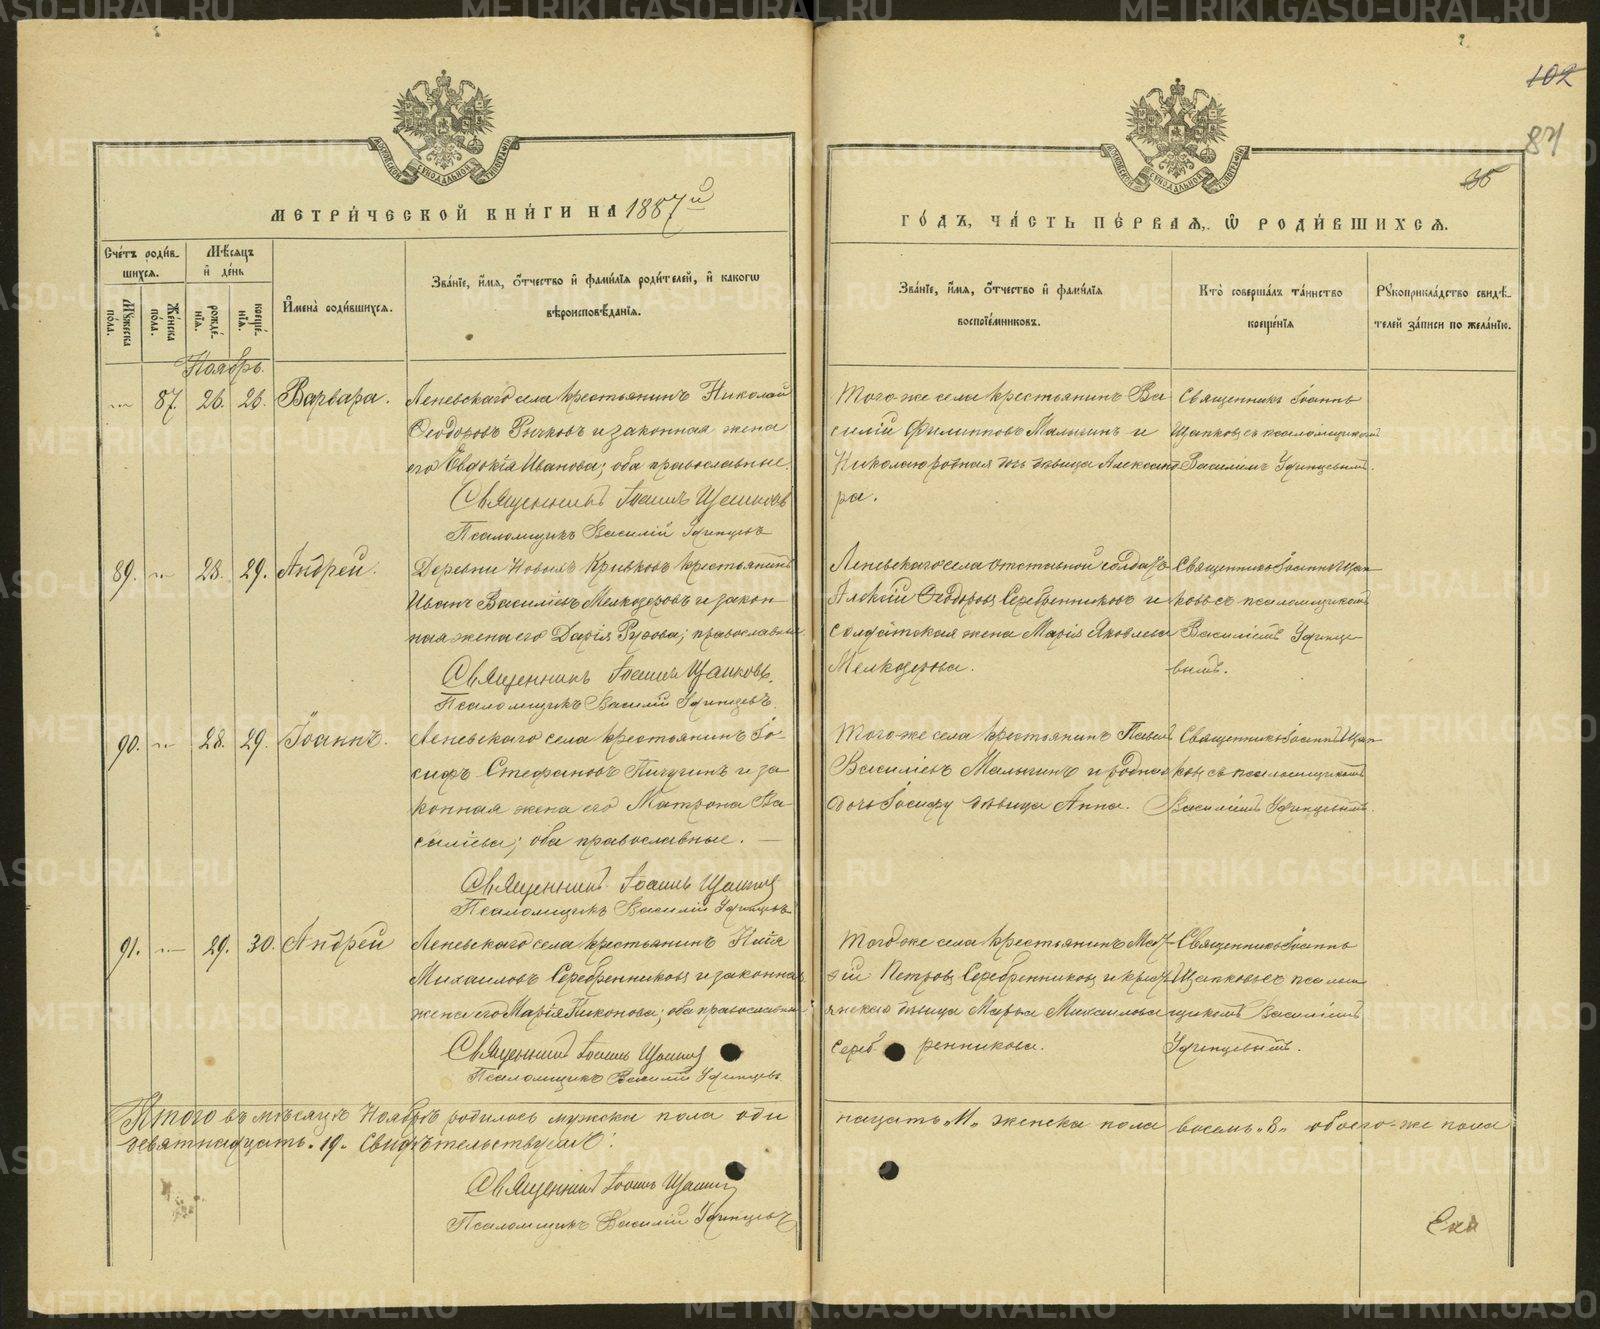 МЕТРИ́ЧЕСКОЙ КНИ́ГИ НА 1887й
ГО́ДЪ, ЧА́СТЬ ПЕ́РВАЯ, Ѡ РОДИ́ВШИХСЯ.
102
87
Сче́тъ роди́в-
шихся.
Мѣ́сяцъ
и҆ де́нь
Мꙋ́жеска
по́ла.
Же́нска
по́ла.
рожде́-
нїѧ.
креще́-
нїѧ.
И҆мена̀ роди́вшихся.
Зва́нїе, и҆́мѧ, ѻ҆́тчество и҆ фами́лїѧ роди́телей, и҆ какогѡ
вѣроисповѣ́данїѧ.
Зва́нїе, и҆́мѧ, ѻ҆́тчество и҆ фами́лїѧ
воспрїе́мниковъ.
Кто̀ соверша́лъ та́инство
креще́нїѧ
Рꙋкоприкла́дство свидѣ́-
телей за́писи по жела́нїю.
Ноябрь.
87. 26. 26. Варвара.
Леневскаго села крестьянинъ Николай
Ѳеодоровъ Рычковъ и законная жена
его Евдокія Иванова; оба православные.
Священникъ Іоаннъ
Псаломщикъ Василій Удинцевъ
Того же села крестьянинъ Ва
силій Филипповъ Малыгинъ и
Николаю родная дѣвица Александ
ра.
Священникъ Іоаннъ
съ псаломщикомъ
Василіемъ Удинцевымъ.
89. 28. 29. Андрей.
Деревни Новыхъ Кривковъ крестьянинъ
Иванъ Василіевъ Мелкозеровъ и закон-
ная жена его Дарія; православные.
Священникъ Іоаннъ
Псаломщикъ Василій Удинцевъ.
Леневскаго села отставной солдатъ
Алексій Ѳеодоровъ Серебренниковъ и
солдатская жена Марія Яковлева
Мелкозерова.
Священникъ Іоаннъ
съ псаломщикомъ
Василіемъ Удинце-
вымъ.
90. 28. 29. Іоаннъ.
Леневскаго села крестьянинъ Іо-
сифъ Стефановъ Пичугинъ и за
конная жена его Матрона Ва-
силіева; оба православные.
Священникъ Іоаннъ
Псаломщикъ Василій Удинцевъ
Того же села крестьянинъ
Василіевъ Малыгинъ и родная
дочь Іосифу дѣвица Анна.
Священникъ Іоаннъ
съ псаломщикомъ
Василіемъ Удинцевымъ.
91. 29. 30. Андрей
Леневскаго села крестьянинъ
Михаиловъ Серебренниковъ и законная
жена его Марія Никонова; оба православные
Священникъ Іоаннъ
Псаломщикъ Василій Удинцевъ.
Того же села крестьянинъ Мат-
ѳій Петровъ Серебренниковъ и крест
янская дѣвица Марья Михаилова
Серебренникова.
Священникъ Іоаннъ
съ псалом
щикомъ Василіемъ
Удинцевымъ.
Итого въ мѣсяцѣ Ноябрѣ родилось мужска пола оди
надцать „11„ женска пола восемь „8„ обоего-же пола
девятнадцать „19„ Свидѣтельствуемъ:
Священникъ Іоаннъ
Псаломщикъ Василій Удинцевъ
METRIKI.GASO-URAL.RU